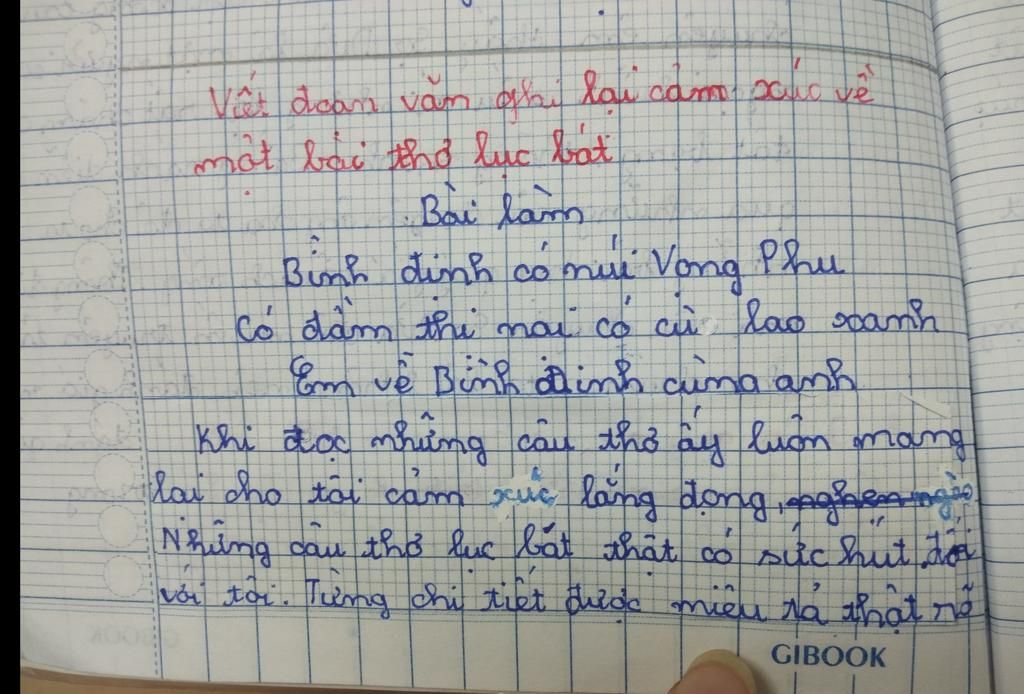 Viết đoan văn ghi lại cảm xúc về
một bài thơ lục bát
Bài làm
Bình định có núi Vọng Phu
Có đầm thi nai có cù lao xoanh
Em về Bình định cùng anh
Khi đọc những câu thơ ấy luôn mang
lại cho tôi cảm xúc lắng đọng,
Những câu thơ lục bát thật có sức hút đối
với tôi. Từng chi tiết được miêu tả thật rõ
GIBOOK